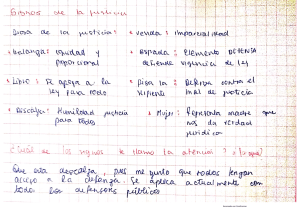 Signos de la justicia
Diosa de la justicia: • venda: imparcialidad
• balanza: igualdad y • Espada: Elemento DEFENSA
proporcional defiende vigencia de ley
• Libro: Se apega a la • pisa la : Defensa contra el
ley para todo serpiente mal de justicia
• Descalza: Humildad justicia • Mujer: Representa madre que
para todos nos da verdad
jurídica
¿Cuál de los signos te llamo la atención? ¿x qué?
Que esa descalza, pues me gusto que todos tengan
acceso a la defensa. Se aplica actualmente con
todo los defensores públicos